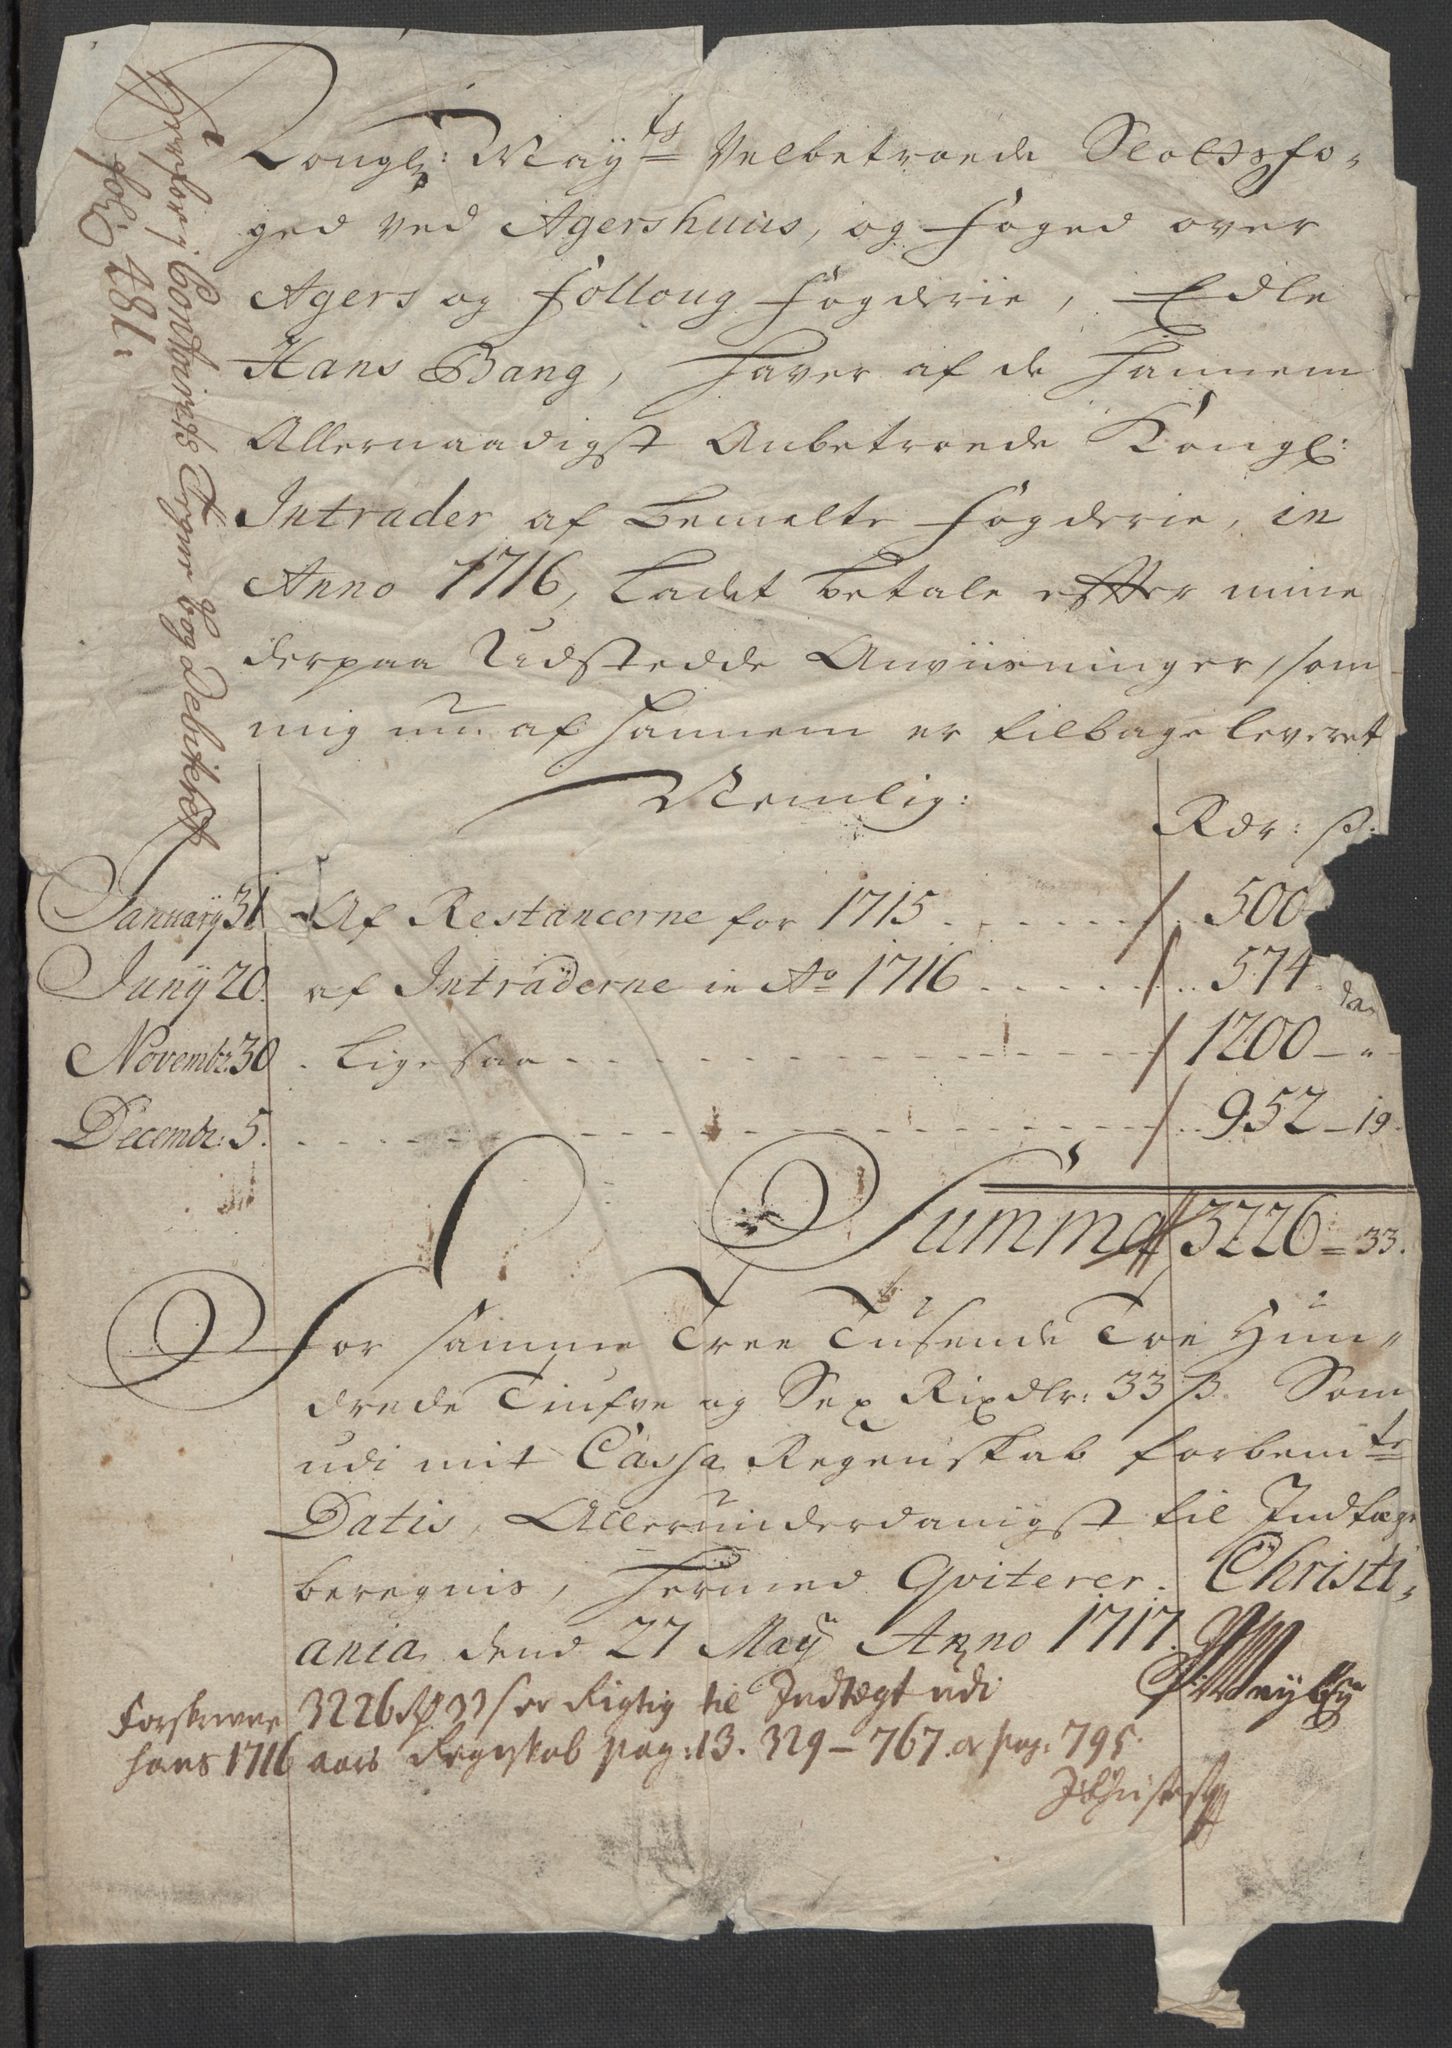 Kongl: May^ts Velbetroede Slotsfo,,
ged ved Agershuus, og Foged over
Agers og Folloug Fogderie, Edle
Hans Bang, Haver af de Hannem
Allernaadigst Anbetroede Kongl:
Intrader af bemelte Fogderie, in
Anno 1716, Ladet betale effter mine
derpaa Udstedde Anviisninger, som
mig nu af Hannem er tilbage leveret
Nemlig:
Rdr: ß:
January 31 Af Restancerne for 1715 500
Juny 20. af Intraderne in Ao 1716 574
Novembr: 30 Ligesaa 1200 – " –
Decembr: 5. 952 – 19.
Summa 3226 = 33.
For samme Tree Tusende Toe Hun,,
drede Tiufve og Sex Rixdlr: 33 ß. Som
udi mit Cassa Regenskab forbem^te
Datis, Allerunderdanigst til Indtægt
beregnis, Hermed Qviterer. Christi,,
ania dend 27 May Anno 1717.
Forskrevne 3226 33 ß er Rigtig til Indtægt udi
hans 1716 aars Regnskab pag: 13. 329 – 767. & pag: 795.
Herfore i Contoirets Bog Debiteret
fol: 481: